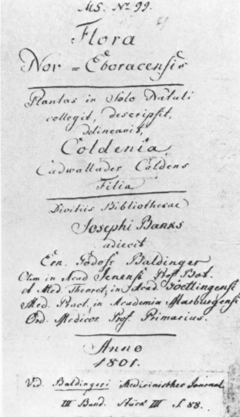 MS. No 99.
Flora
Nov-Eboracensis
Plantas in Solo Natali
collegit, descripsit,
delineavit,
Coldenia
Cadwallader Coldens
Filia
Divitiis Bibliothecae
Josephi Banks
adiecit
Ern. Godofr Baldinger
Olim in Acad Jenensi Prof. Bot.
& Med Theoret, in Acad Goettingensi
Med. Pract. in Academia Marburgensi
Ord. Medicor Prof Primarius.
Anno
1801.
Vid Baldingers Medicinischer Journal
III Band. Stück III S. 88.